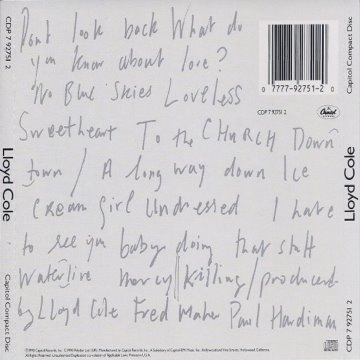 Don't look back What do
you know about love?
No Blue Skies Loveless
Sweetheart To the CHURCH Down
town / A long way down Ice
cream girl Undressed I hate
to see you baby doing that stuff
Waterline mercy killing / produced
by Lloyd Cole Fred Maher Paul Hardiman
CDP 7 92751 2
Lloyd Cole
Capitol Compact Disc
0 7777-92751-2 0
CDP 7 92751 2
Capitol
Capitol Compact Disc
Lloyd Cole
CDP 7 92751 2